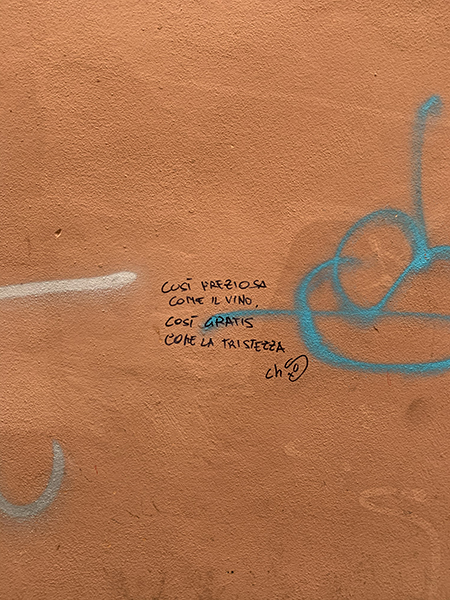 COSÌ PREZIOSA
COME IL VINO,
COSÌ GRATIS
COME LA TRISTEZZA
ch